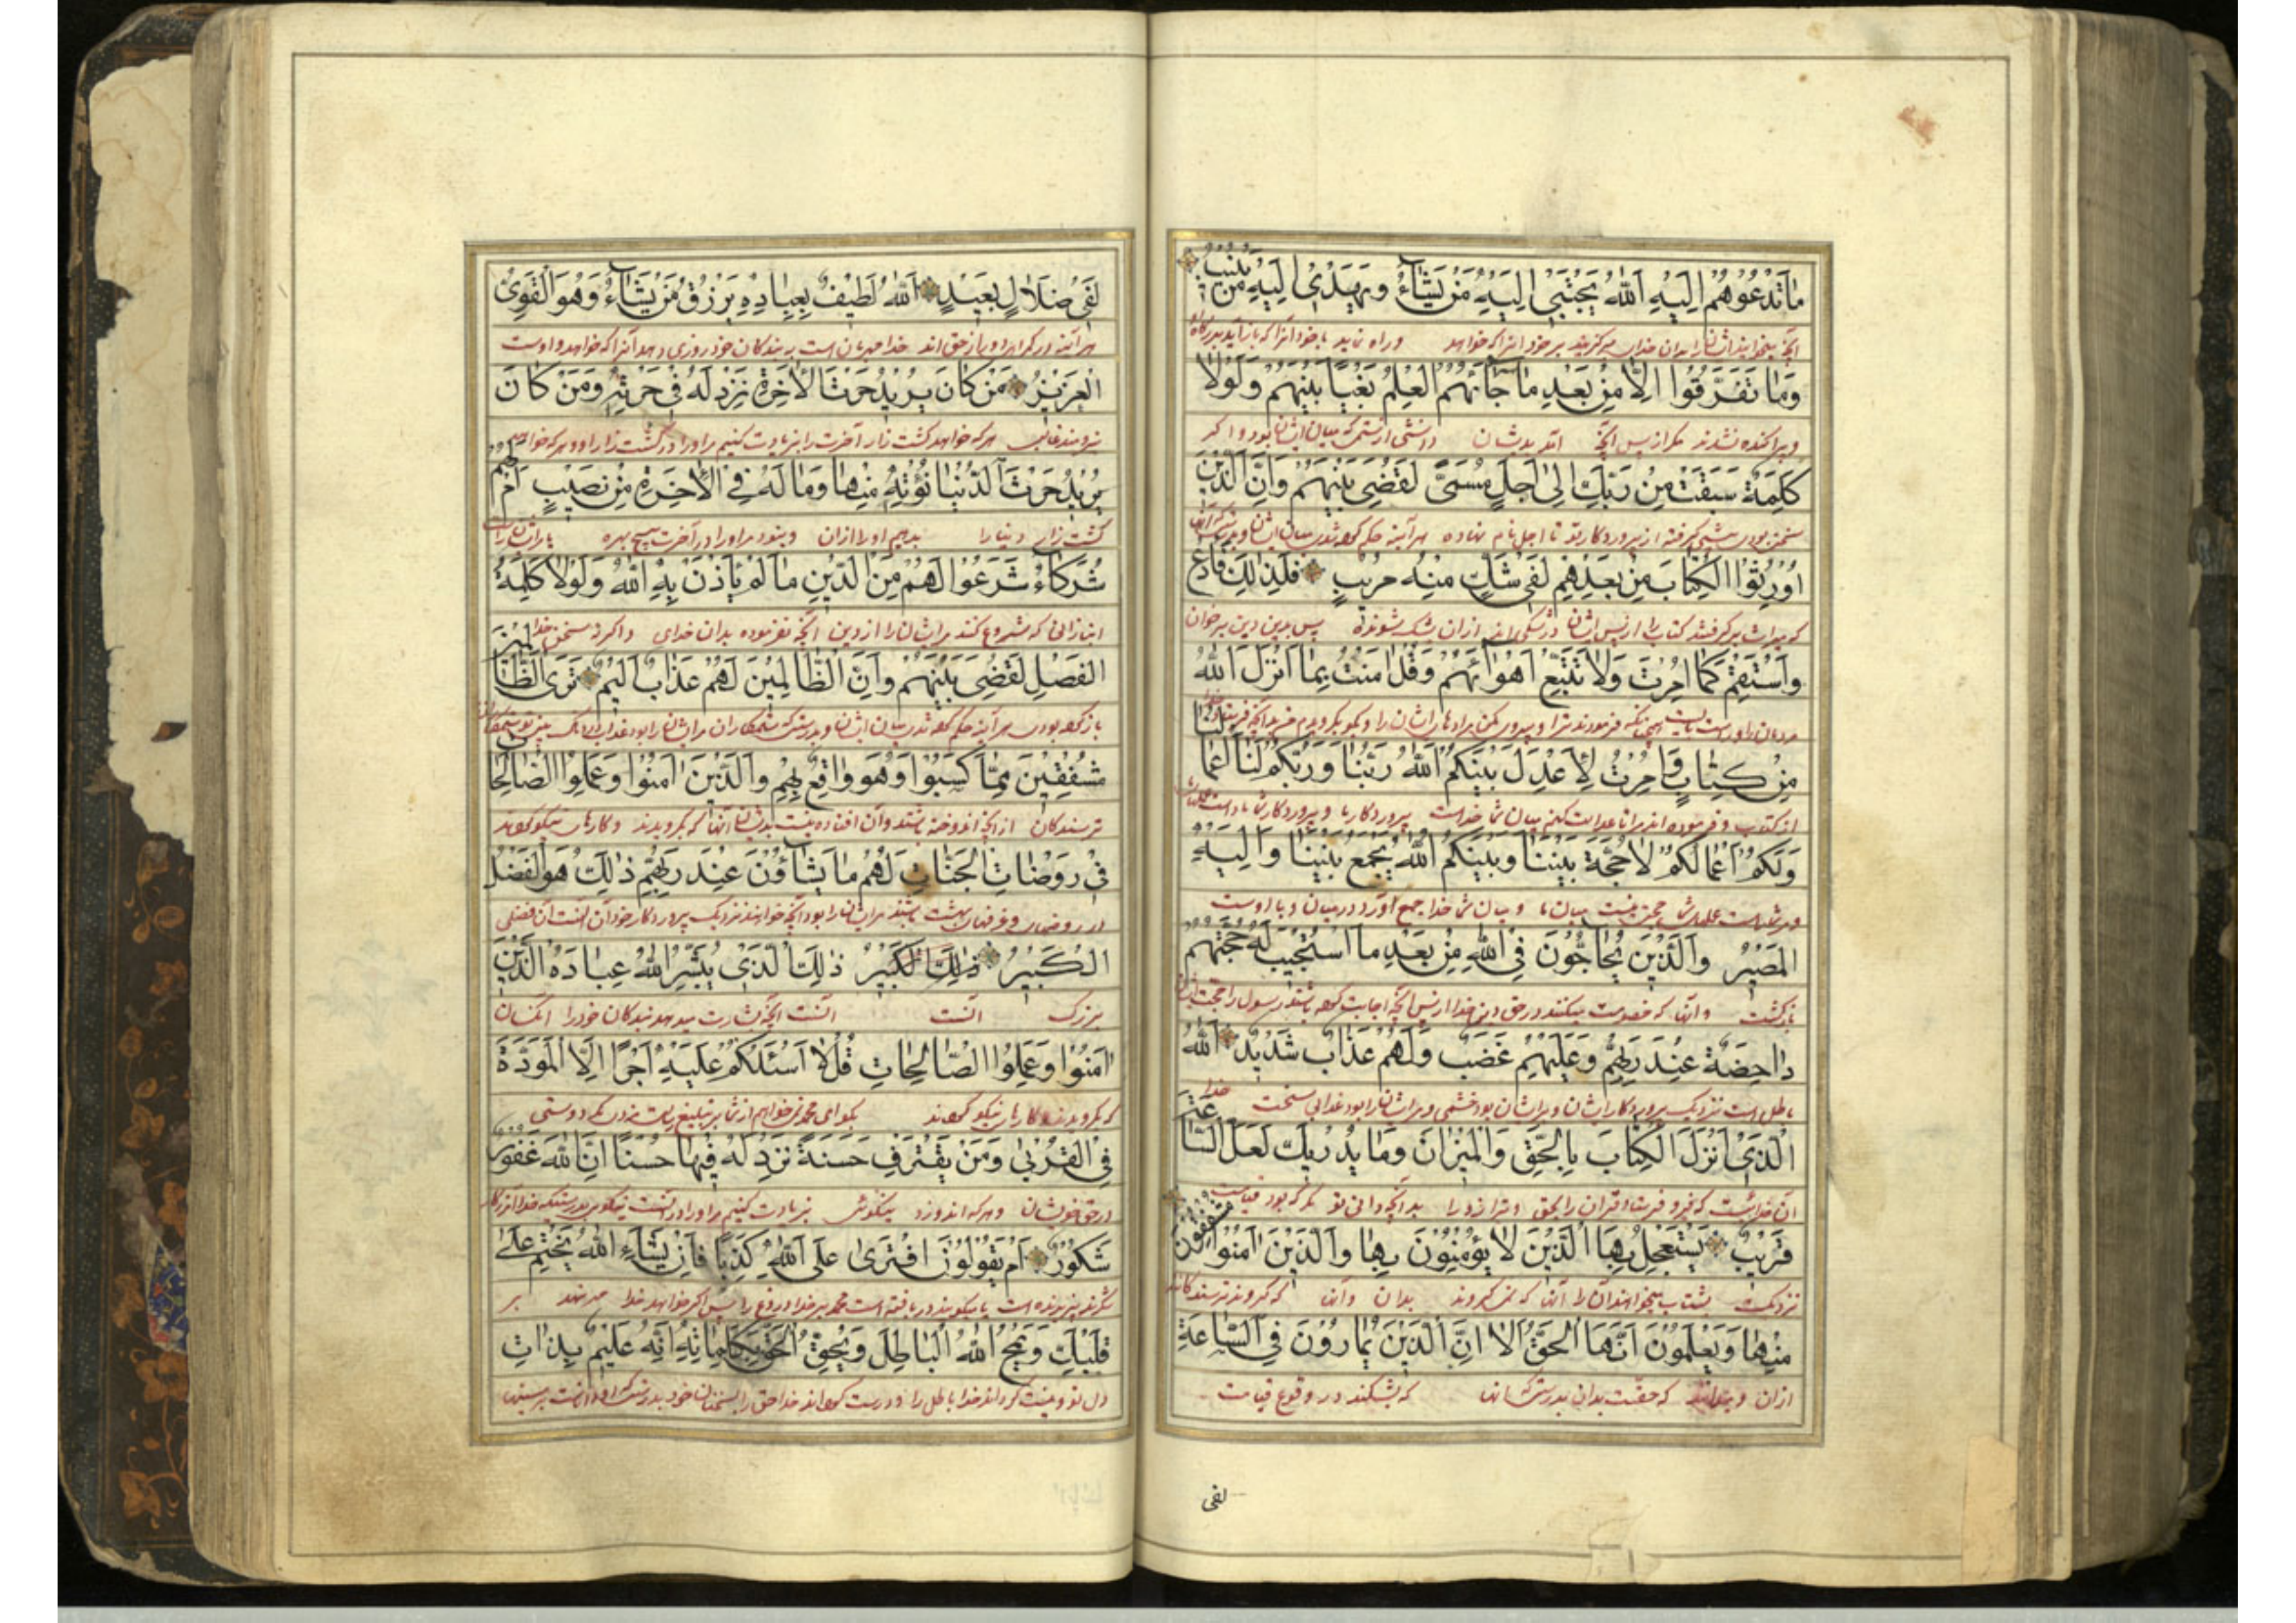 مَا تَدْعُوهُمْ اِلَيْهِ اَللّٰهُ يَجْتَبِي اِلَيْهِ مَنْ يَشَاءُ وَيَهْدِي اِلَيْهِ مَنْ يُنِيبُ
وراه نماید بخود آنرا که باز آید بدرگاه
وَمَا تَفَرَّقُوا اِلَّا مِنْ بَعْدِ مَا جَاءَهُمُ الْعِلْمُ بَغْيًا بَيْنَهُمْ وَلَوْلَا
وپراکنده نشدند مگر از پس آنچه آمد بدیشان دانشی از ستمی که میان ایشان بود و اگر
كَلِمَةٌ سَبَقَتْ مِنْ رَبِّكَ اِلٰى اَجَلٍ مُسَمًّى لَقُضِيَ بَيْنَهُمْ وَاِنَّ الَّذِينَ
سخنی بودی پیشی گرفته از پروردگار تو تا اجل نام نهاده هر آینه حکم کرده شدی میان ایشان و بدرستی که آنها
اُورِثُوا الْكِتَابَ مِنْ بَعْدِهِمْ لَفِي شَكٍّ مِنْهُ مُرِيبٍ فَلِذٰلِكَ فَادْعُ
که میراث برگرفتند کتاب را از پس ایشان در شکی اند از آن بشک شونده پس بدین دین برخوان
وَاسْتَقِمْ كَمَا اُمِرْتَ وَلَا تَتَّبِعْ اَهْوَاءَهُمْ وَقُلْ اٰمَنْتُ بِمَا اَنْزَلَ اللّٰهُ
مِنْ كِتَابٍ وَاُمِرْتُ لِاَعْدِلَ بَيْنَكُمُ اَللّٰهُ رَبُّنَا وَرَبُّكُمْ لَنَا اَعْمَالُنَا
از کتاب و فرموده اند مرا تا عدالت کنم میان شما خداست پروردگار ما و پروردگار شما
وَلَكُمْ اَعْمَالُكُمْ لَا حُجَّةَ بَيْنَنَا وَبَيْنَكُمُ اَللّٰهُ يَجْمَعُ بَيْنَنَا وَاِلَيْهِ
ومر شماست عملهای شما حجتی نیست میان ما و میان شما خدا جمع آورد در میان و با اوست
الْمَصِيرُ وَالَّذِينَ يُحَاجُّونَ فِي اللّٰهِ مِنْ بَعْدِ مَا اسْتُجِيبَ لَهُ حُجَّتُهُمْ
بازگشت و آنها که خصومت میکنند در حق دین خدا از پس آنچه اجابت کرده باشند رسول را حجت ایشان
دَاحِضَةٌ عِنْدَ رَبِّهِمْ وَعَلَيْهِمْ غَضَبٌ وَلَهُمْ عَذَابٌ شَدِيدٌ اَللّٰهُ
باطل است نزدیک پروردگار ایشان و برایشان بود خشمی و مرایشان را بود عذابی سخت خدا
الَّذِي اَنْزَلَ الْكِتَابَ بِالْحَقِّ وَالْمِيزَانَ وَمَا يُدْرِيكَ لَعَلَّ السَّاعَةَ
آن خداییست که فرو فرستاد قرآن را بحق و ترازو را بود قیامت
قَرِيبٌ يَسْتَعْجِلُ بِهَا الَّذِينَ لَا يُؤْمِنُونَ بِهَا وَالَّذِينَ اٰمَنُوا مُشْفِقُونَ
نزدیک بشتاب میخواهند آن را آنها که نمیگروند بدان و آنها که گرویدند ترسندگانند
مِنْهَا وَيَعْلَمُونَ اَنَّهَا الْحَقُّ اَلَا اِنَّ الَّذِينَ يُمَارُونَ فِي السَّاعَةِ
از آن و میدانند که حقست بدان بدرستی که آنها که بشکنند در وقوع قیامت
لفی
لَفِي ضَلَالٍ بَعِيدٍ اَللّٰهُ لَطِيفٌ بِعِبَادِهِ يَرْزُقُ مَنْ يَشَاءُ وَهُوَ الْقَوِيُّ
هر آینه در گمراهی دور از حق اند خدا مهربان است به بندگان خود روزی دهد آنرا که خواهد و اوست
الْعَزِيزُ مَنْ كَانَ يُرِيدُ حَرْثَ الْاٰخِرَةِ نَزِدْ لَهُ فِي حَرْثِهِ وَمَنْ كَانَ
نیرومند غالب هر که خواهد کشت زار آخرت را بزیادت کنیم مر او را در کشت زار او و هر که خواهد
يُرِيدُ حَرْثَ الدُّنْيَا نُؤْتِهِ مِنْهَا وَمَا لَهُ فِي الْاٰخِرَةِ مِنْ نَصِيبٍ اَمْ لَهُمْ
کشت زار دنیا را بدهیم او را از آن و نبود مر او را در آخرت هیچ بهره
شُرَكَاءُ شَرَعُوا لَهُمْ مِنَ الدِّينِ مَا لَمْ يَأْذَنْ بِهِ اللّٰهُ وَلَوْلَا كَلِمَةُ
انبازانی که شروع کنند مرایشان را از دین آنچه نفرموده بدان خدای و اگر نه سخن خدا
الْفَصْلِ لَقُضِيَ بَيْنَهُمْ وَاِنَّ الظَّالِمِينَ لَهُمْ عَذَابٌ اَلِيمٌ تَرَى الظَّالِمِينَ
مُشْفِقِينَ مِمَّا كَسَبُوا وَهُوَ وَاقِعٌ بِهِمْ وَالَّذِينَ اٰمَنُوا وَعَمِلُوا الصَّالِحَاتِ
ترسندگان از آنچه اندوخته باشند و آن افتاده نیست بدیشان آنها که گرویدند و کارهای نیکو کردند
فِي رَوْضَاتِ الْجَنَّاتِ لَهُمْ مَا يَشَاؤُنَ عِنْدَ رَبِّهِمْ ذٰلِكَ هُوَ الْفَضْلُ
باشند مرایشان را بود آنچه خواهند نزدیک پروردگار خود آن است آن فضلی
الْكَبِيرُ ذٰلِكَ الْكَبِيرُ ذٰلِكَ الَّذِي يُبَشِّرُ اللّٰهُ عِبَادَهُ الَّذِينَ
بزرگ آنست آنست آنچه بشارت میدهد بندگان خود را آنکسان
اٰمَنُوا وَعَمِلُوا الصَّالِحَاتِ قُلْ لَا اَسْئَلُكُمْ عَلَيْهِ اَجْرًا اِلَّا الْمَوَدَّةَ
که گرویدند و کارهای نیکو کردند بگو ای محمد نمیخواهم از شما بر تبلیغ رسالت مزد مگر دوستی
فِي الْقُرْبٰى وَمَنْ يَقْتَرِفْ حَسَنَةً نَزِدْ لَهُ فِيهَا حُسْنًا اِنَّ اللّٰهَ غَفُورٌ
در حق خویشان و هر که اندوزد نیکوئی بزیادت کنیم مر او را در آن
شَكُورٌ اَمْ يَقُولُونَ افْتَرٰى عَلَى اللّٰهِ كَذِبًا فَاِنْ يَشَاءِ اللّٰهُ يَخْتِمْ عَلٰى
پس اگر خواهد خدا مهر نهد بر
قَلْبِكَ وَيَمْحُ اللّٰهُ الْبَاطِلَ وَيُحِقُّ الْحَقَّ بِكَلِمَاتِهِ اِنَّهُ عَلِيمٌ بِذَاتِ
دل تو و نیست گرداند خدا باطل را و درست گرداند خدا حق را بسخنان خود